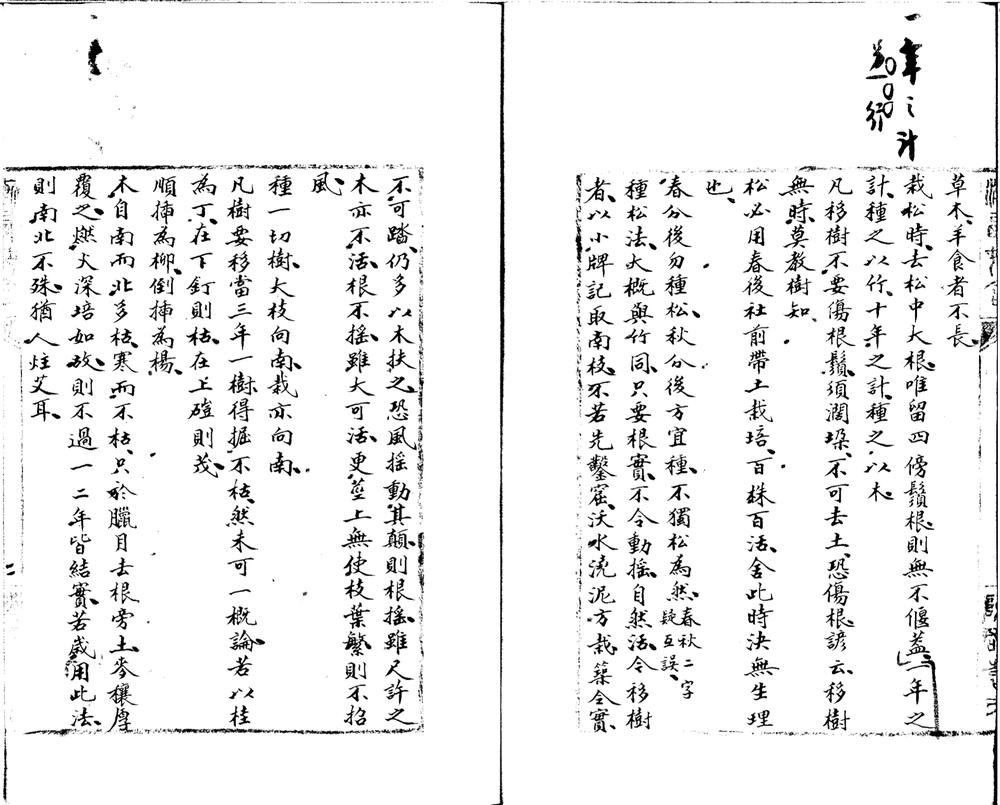 一年之計
另行
草木羊食者不長
栽松時、去松中大根、唯留四傍鬚根、則無不偃蓋、一年之
計、種之以竹、十年之計、種之以木
凡移樹不要傷根鬚、須濶垜、不可去土、恐傷根、諺云、移樹
無時、莫教樹知、
松必用春後社前帶土栽培、百株百活、舍此時決無生理
也、
春分後勿種松、秋分後方宜種、不獨松為然、春秋二字疑互誤、
種松法、大概與竹同、只要根實、不令動搖、自然活、令移樹
者、以小牌記取南枝、不若先鑿窟、沃水澆泥方栽、築令實、
不可踏、仍多以木扶之、恐風搖動其顛、則根搖、雖尺許之
木亦不活、根不搖、雖大可活、更莖上無使枝葉繁、則不招
風、
種一切樹、大枝向南、栽亦向南、
凡樹要移、當三年一樹、得掘不枯、然未可一概論、若以桂
為丁、在下釘則枯、在上磑則茂、
順揷為柳、倒揷為楊、
木自南而北多枯、寒而不枯、只於臘月去根旁土、麥穰厚
覆之、燃火深培如故、則不過一二年皆結實、若歲用此法、
則南北不殊、猶人炷艾耳、